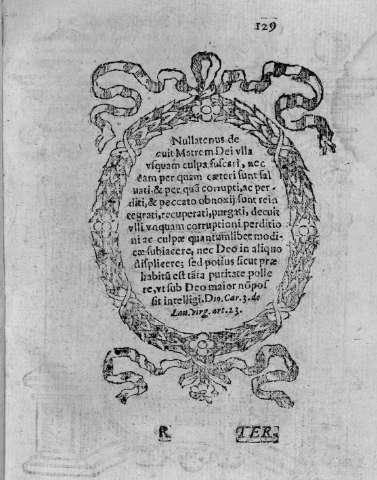 129
Nullatenus de
cuit Matrem Dei vlla
vſquam culpa fuſcari, nec
eam per quam cæteri ſunt ſal
uati, & per quā corrupti, ac per-
diti, & peccato obnoxij ſunt rein
tegrati, recuperati, purgati, decuit
vlli vnquam corruptioni perditio
ni ac culpæ quantumlibet modi-
cæ ſubiacere, nec Deo in aliquo
diſplicere; ſed potius ſicut præ
habitū eſt tāta puritate polle
re, vt ſub Deo maior nō poſ
ſit intelligi. Dio. Car. 3. de
Lau. Virg. art. 23.
R TER,